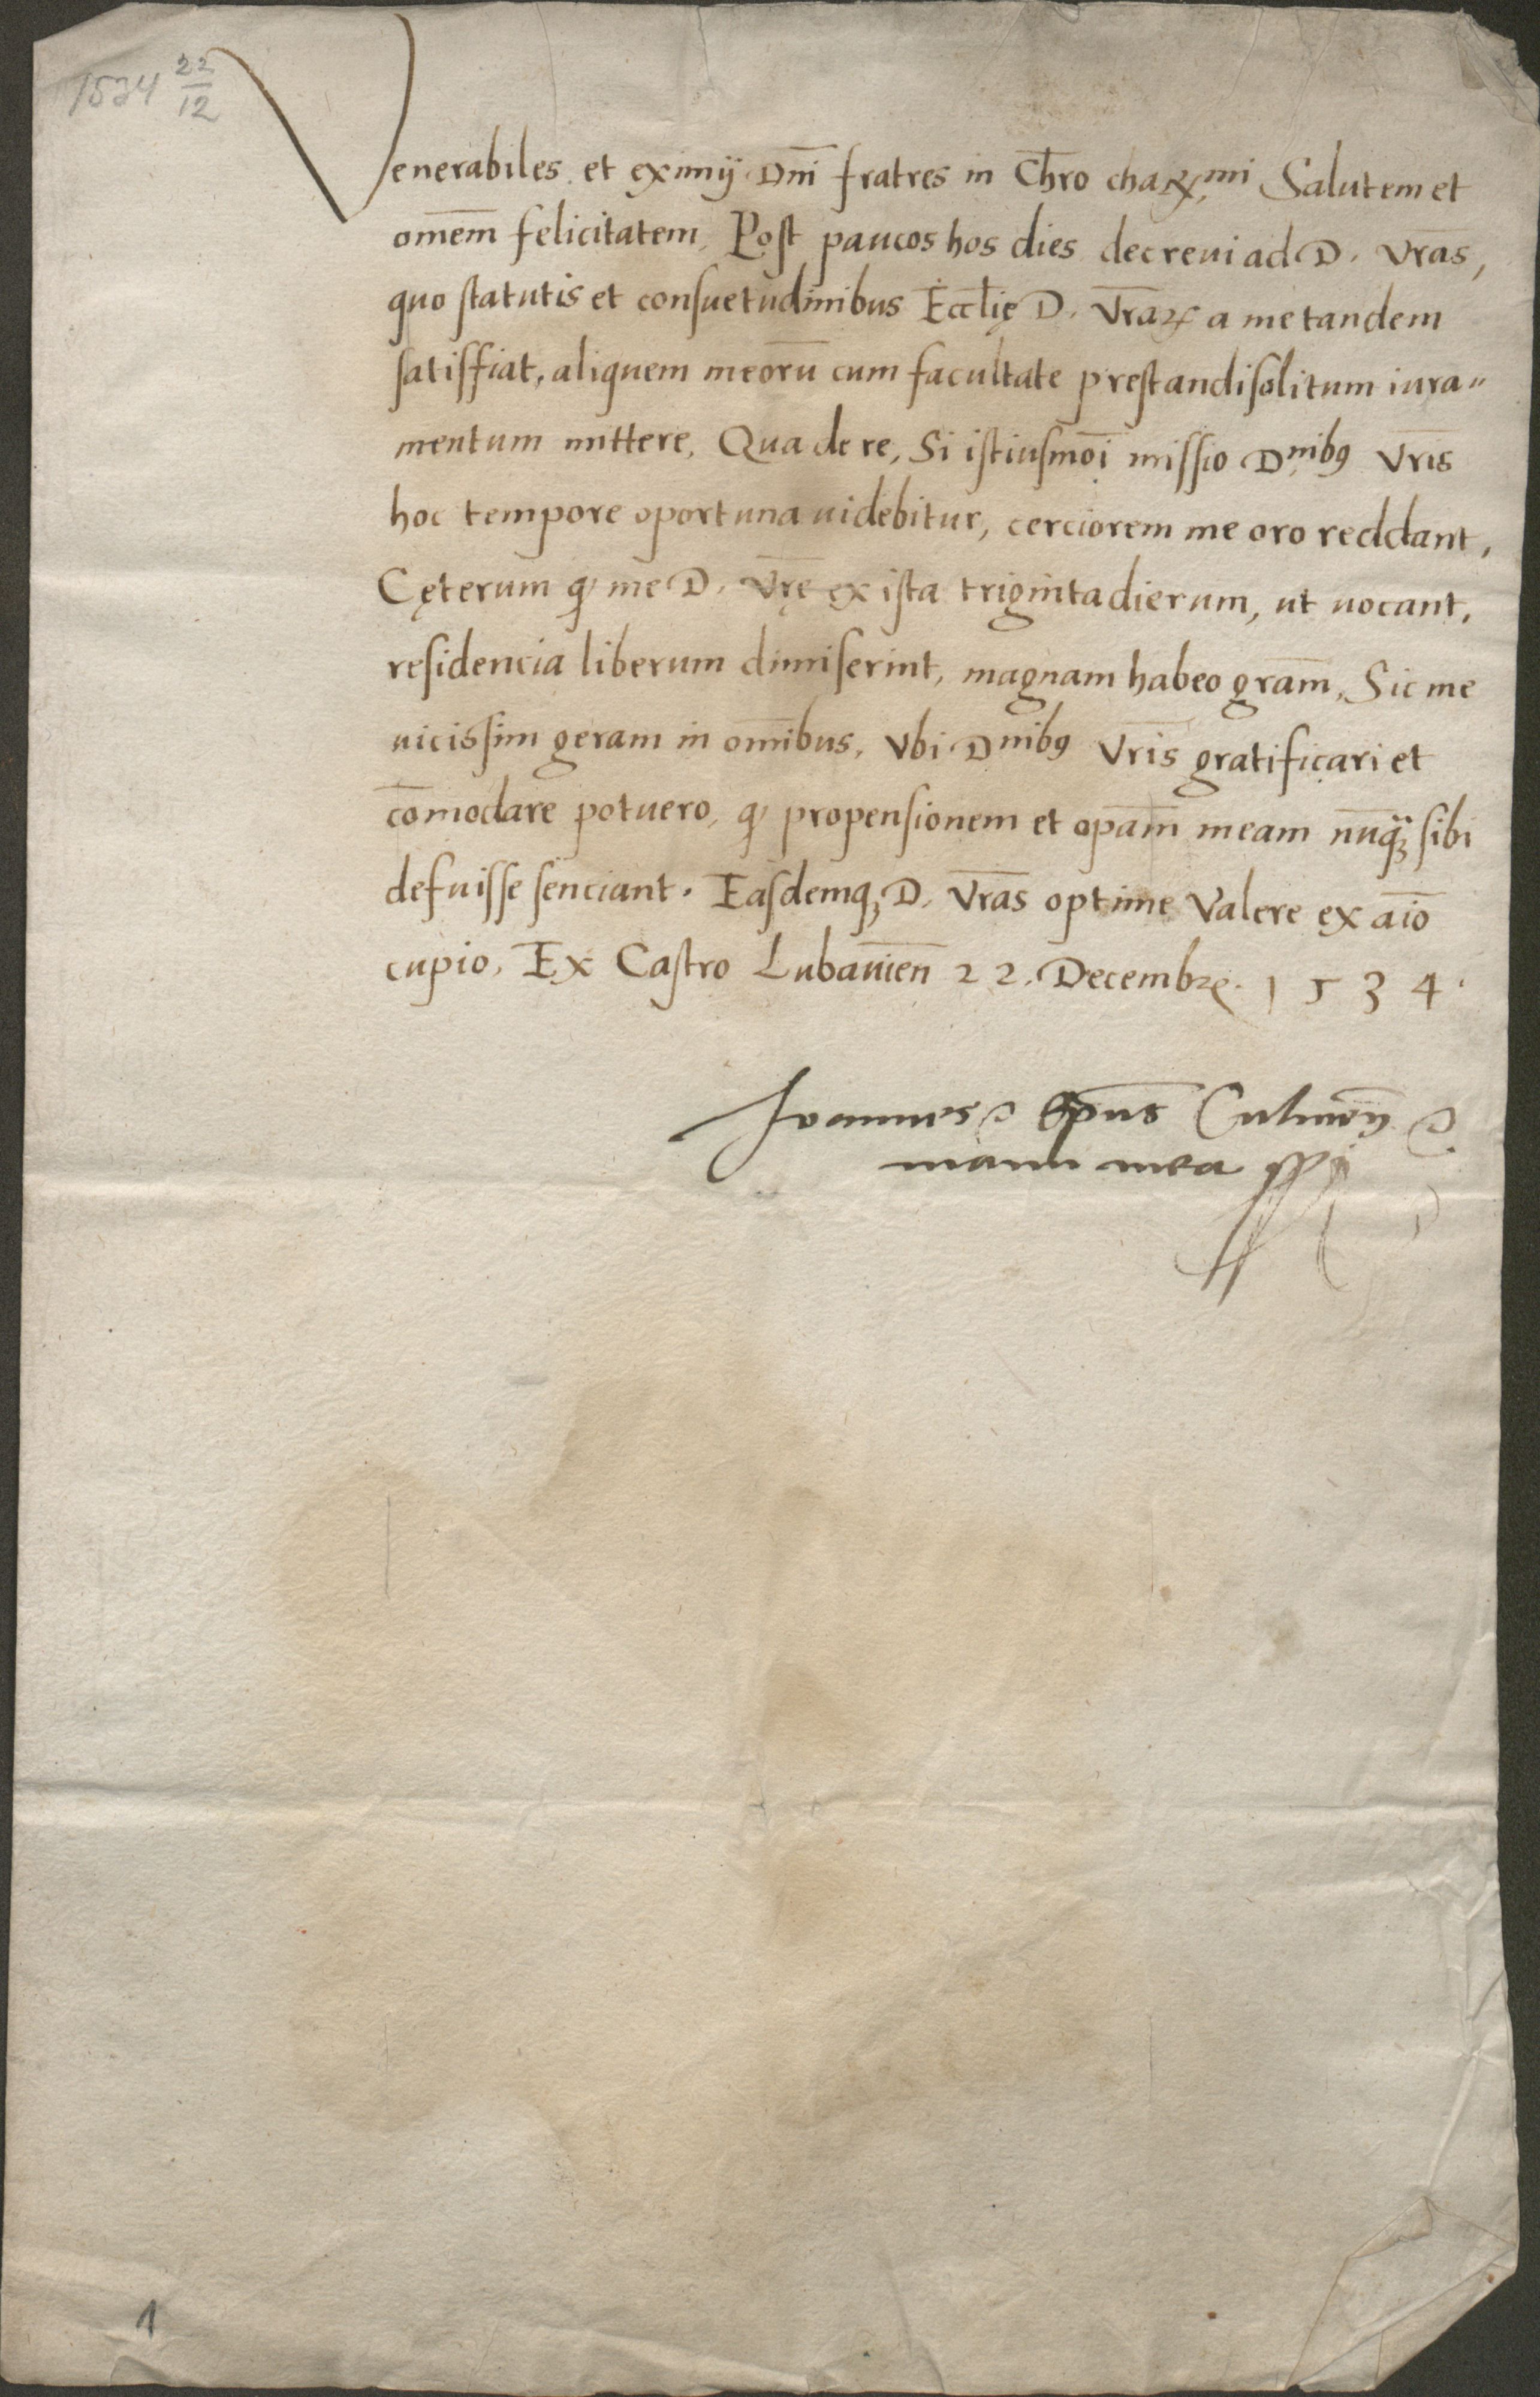 1534 22/12
Venerabiles et eximij Dñi fratres in Chro̅ chariss.mi Salutem et
omem̅ felicitatem, Post paucos hos dies decreui ad D. Vr̅as,
quo statutis et consuetudinibus Eccl̅ię D. Vr̅aꝝ a me tandem
satisfiat, aliquem meoru̅ cum facultate prestandi solitum iura"
mentum mittere, Qua de re, Si istiusmo̅i missio Dnibꝰ Vr̅is
hoc tempore oportuna uidebitur, cerciorem me oro reddant,
Cęterum ꝙ me D. Vr̅ę ex ista triginta dierum, ut uocant,
residencia liberum dimiserint, magnam habeo gra̅m, Sic me
uicissim geram in om̅ibus, Vbi Dnibꝰ Vr̅is gratificari et
com̅odare potuero, ꝙ propensionem et opa̅m meam nu̅qꝫ sibi
defuisse senciant. Easdemqꝫ D. Vr̅as optime Valere ex ai̅o
cupio, Ex Castro Lubauien̅ 22. Decembr. 1534.
Joannes Ep̅us Culmen̅
manu mea sst
1